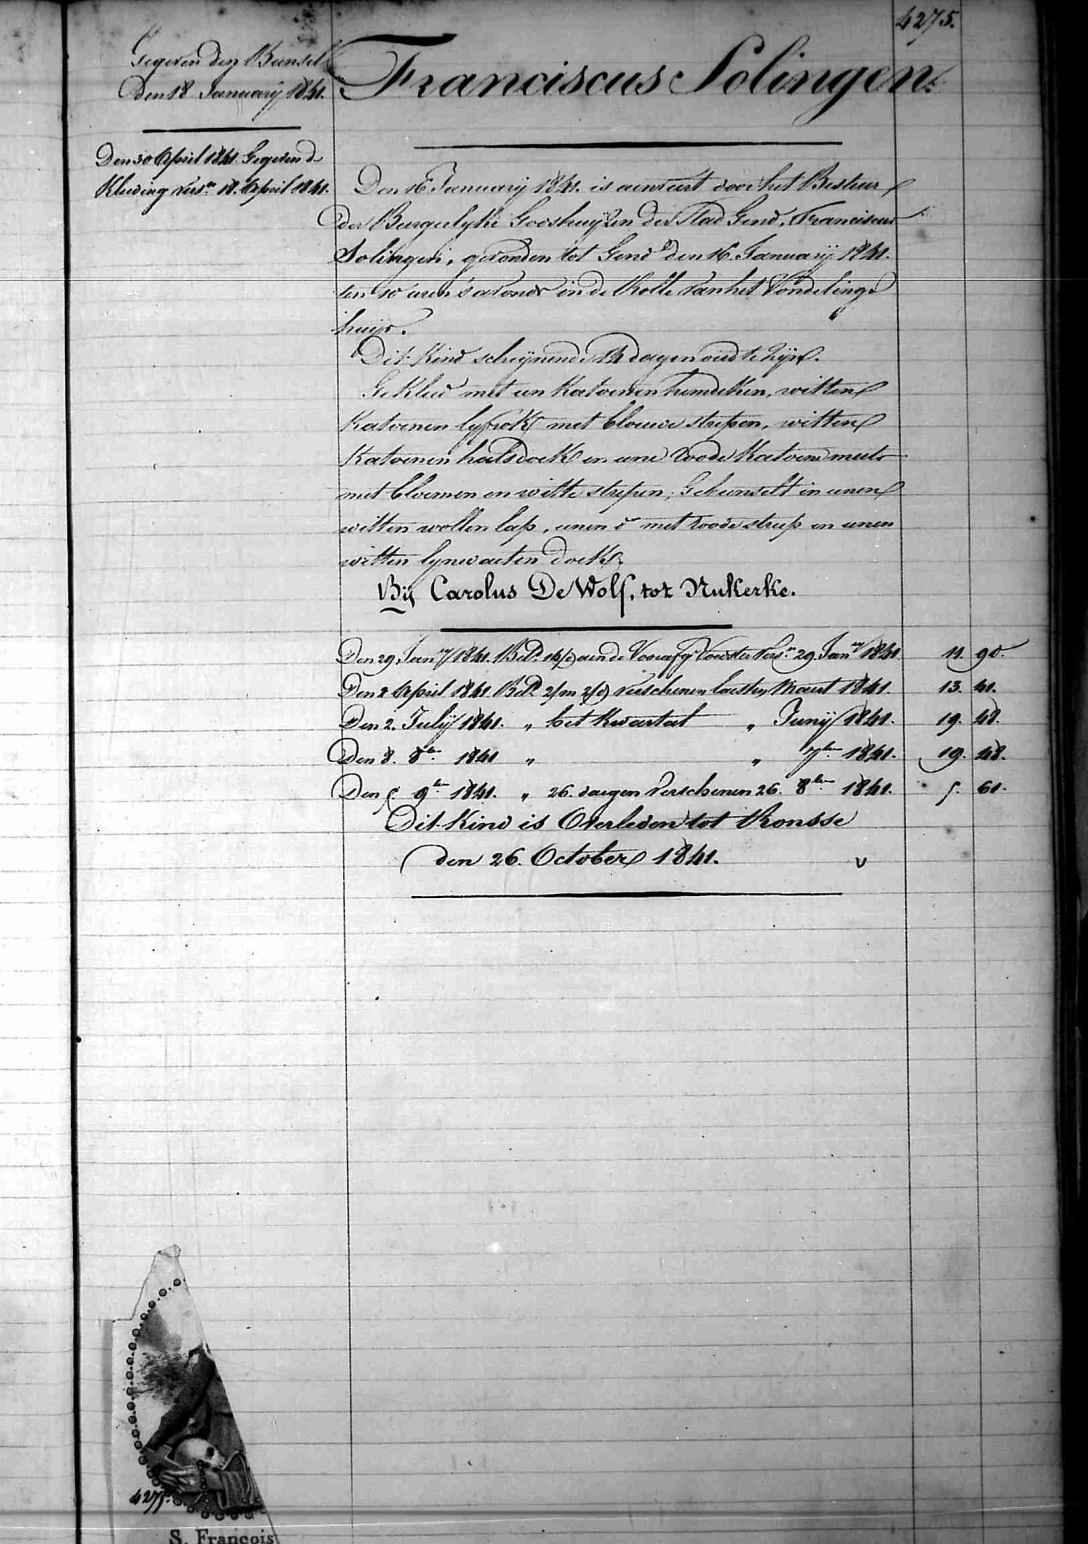 4275.
Gegeven den Bunsel
den 18 January 1841.
Franciscus Solingen.
Den 30 April 1841 Gegeven d
Kleding vers.n 18. April 1841.
Den 16 January 1841. is aenveert door het Bestuer
der Burgerlyke Godshuijzen der Stad Gend, Franciscus
Solingen, gevonden tot Gend den 16. January 1841.
ten 10 uren 's avonds in de Rolle van het Vondelings
huijs.
Dit Kind schynende 14 dagen oud te Zyn.
Gekleed met een Katoenen hemdeken, witten
Katoenen lyfrok met blouwe strepen, witten
Katoenen halsdoek en eene roode Katoene muts
met bloemen en witte strepen; Gebunselt in eenen
witten wollen lap, eenen d.o met roode streep en eenen
witten lynwaeten doek.
Bij Carolus De Wolf, tot Nukerke.
Den 29 Jan.ry 1841. Bet.d aen de Voester vers.n 29 Jan.ry 1841 11. 90.
Den 2 April 1841. Bet.d 2/m 2/d verschenen laesten Maert 1841. 13. 41.
Den 2. July 1841. " het Kwartael " Juny 1841. 19. 48.
Den 8. 8.bre 1841 " " 7.bre 1841. 19. 48.
Den 5 9.bre 1841. " 26. daegen verschenen 26. 8.bre 1841. 5. 61.
Dit Kind is Overleden tot Ronsse
den 26. October 1841. v
4275.
S. François